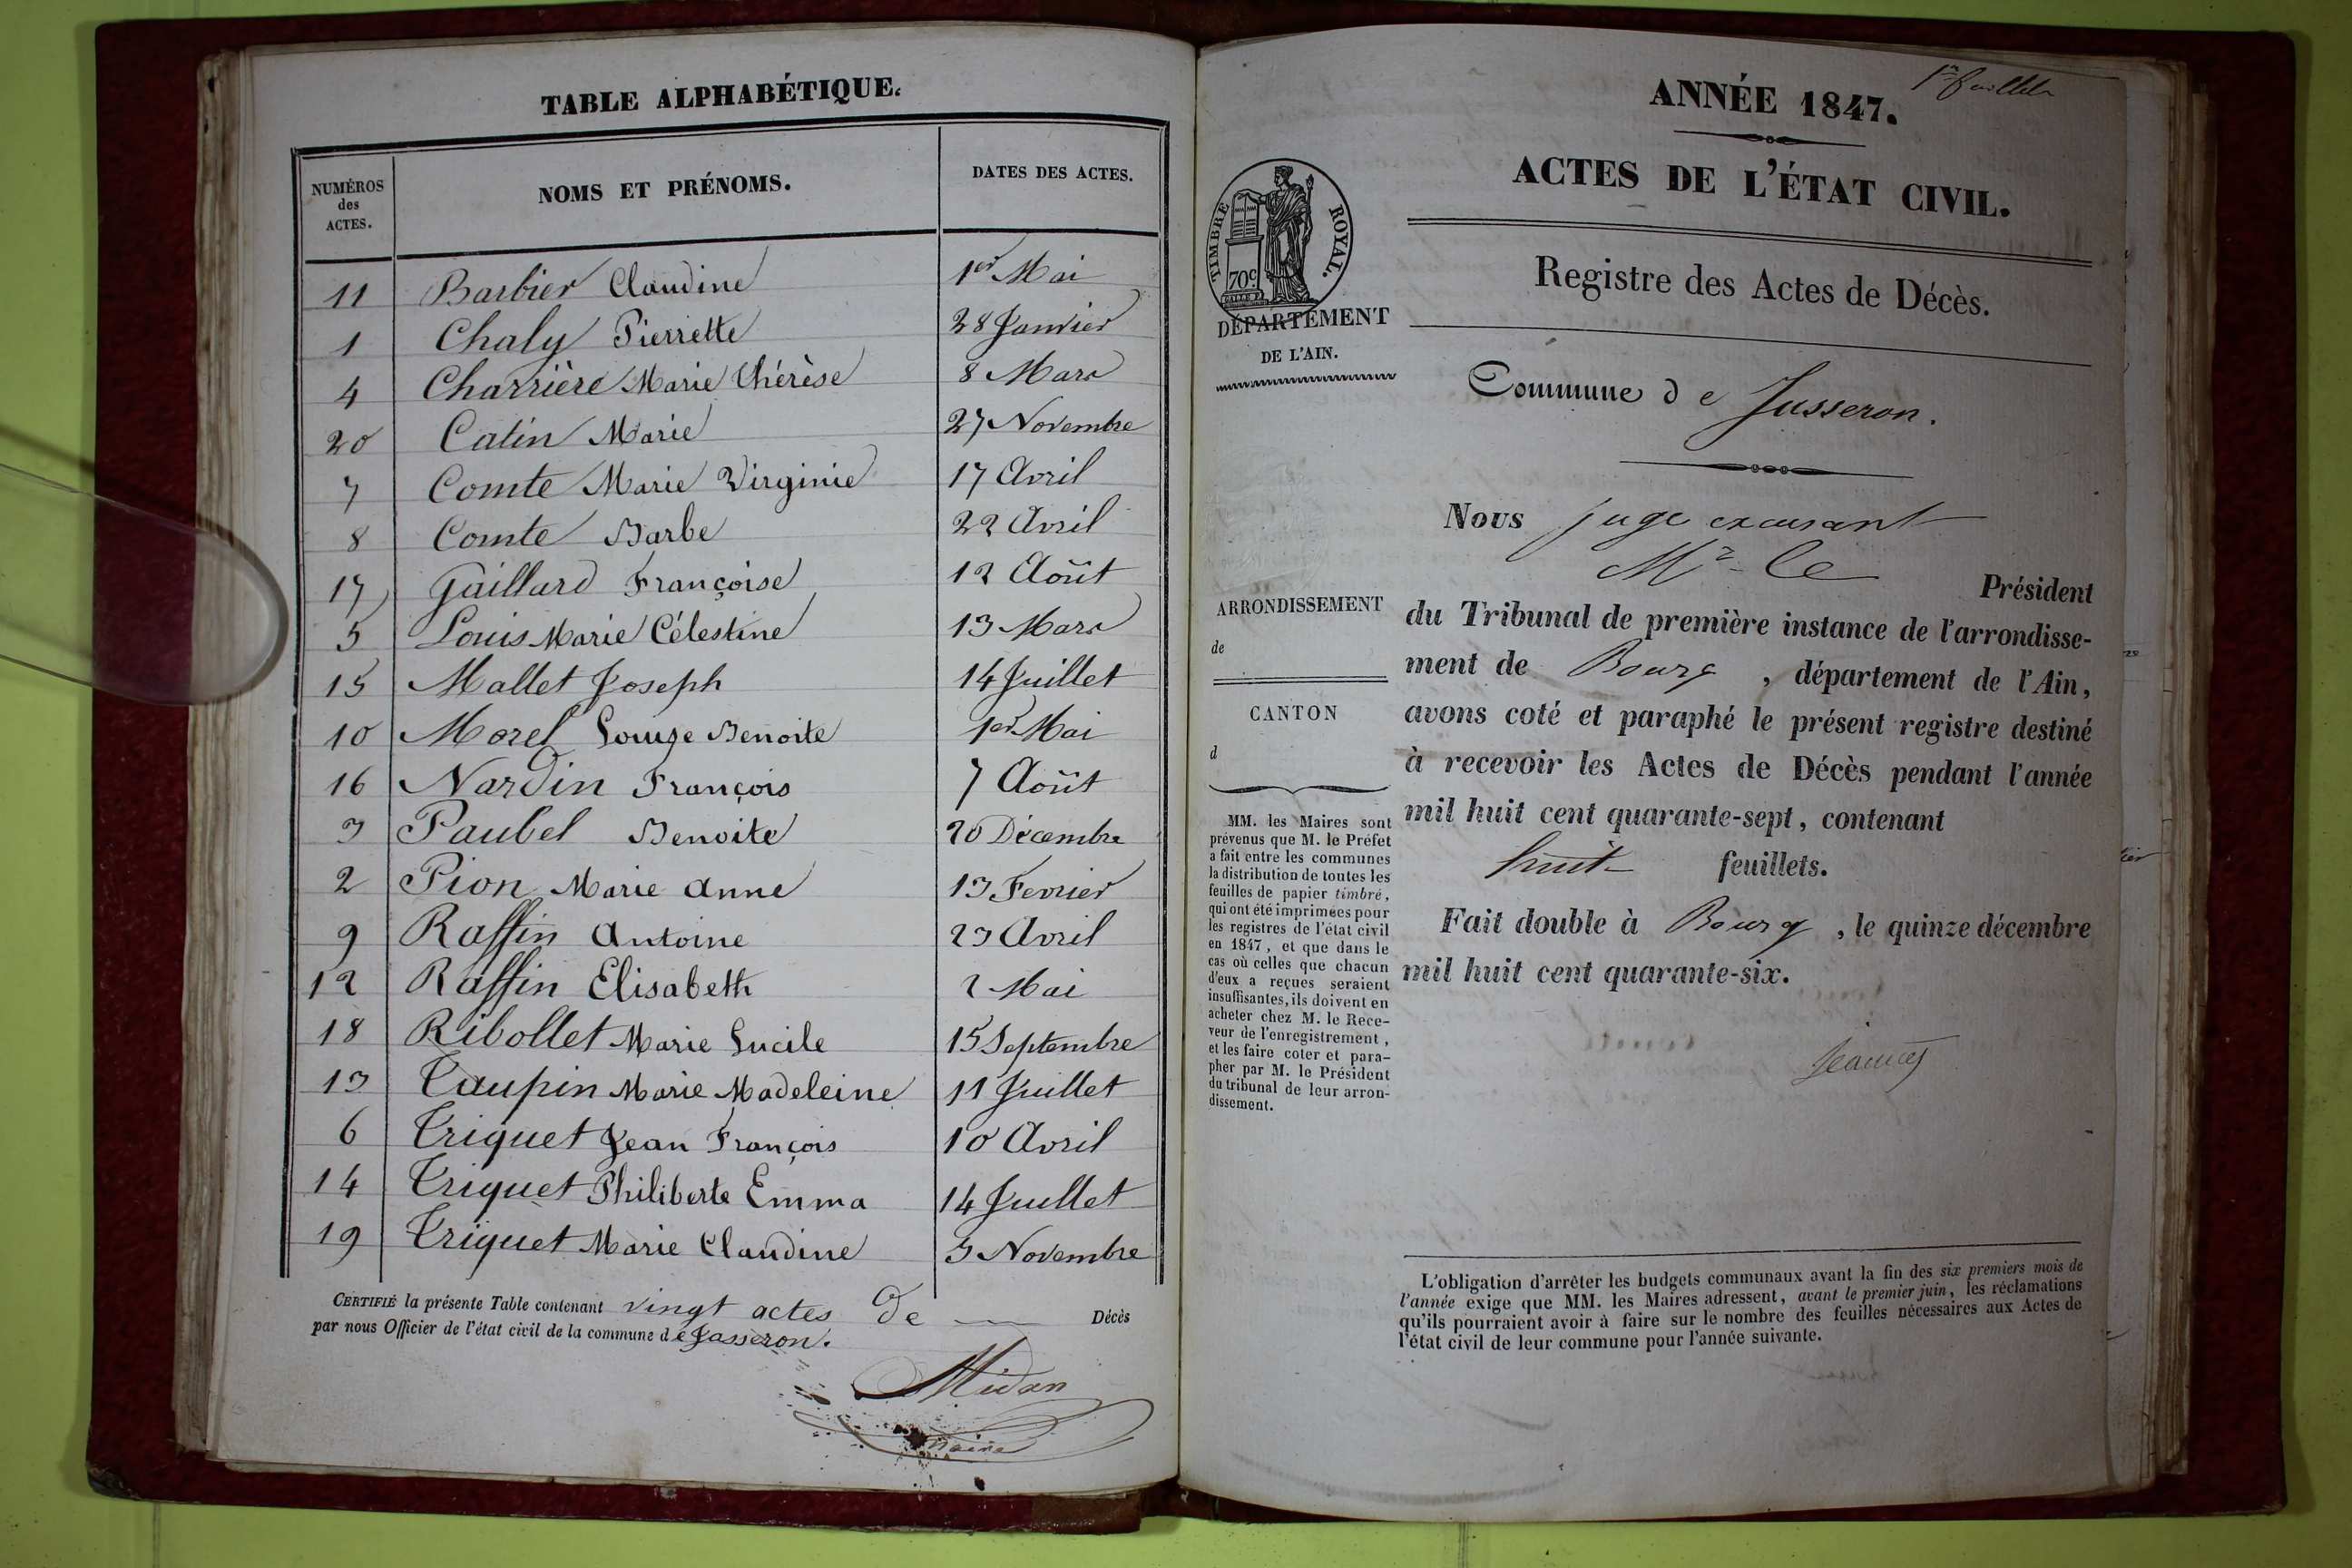 TABLE ALPHABÉTIQUE.
NUMÉROS des ACTES.
NOMS ET PRÉNOMS.
DATES DES ACTES.
11 Barbier Claudine 1er Mai
1 Chaly Pierrette 28 Janvier
4 Charrière Marie Thérèse 8 Mars
20 Catin Marie 27 Novembre
7 Comte Marie Virginie 17 Avril
8 Comte Barbe 22 Avril
17 Gaillard Françoise 12 Août
5 Louis Marie Célestine 13 Mars
15 Mallet Joseph 14 Juillet
10 Morel Louise Benoite 1er Mai
16 Nardin François 7 Août
3 Paubel Benoite 20 Décembre
2 Pion Marie Anne 13 Fevrier
9 Raffin Antoine 23 Avril
12 Raffin Elisabeth 2 Mai
18 Ribollet Marie Lucile 15 Septembre
13 Taupin Marie Madeleine 11 Juillet
6 Triquet Jean François 10 Avril
14 Triquet Philiberte Emma 14 Juillet
19 Triquet Marie Claudine 5 Novembre
CERTIFIÉ la présente Table contenant vingt actes De Décès
par nous Officier de l'état civil de la commune de Jasseron.
Midan
maire
1er feuillet
ANNÉE 1847.
ACTES DE L'ÉTAT CIVIL.
TIMBRE ROYAL.
70c
DÉPARTEMENT
DE L'AIN.
Registre des Actes de Décès.
Commune de Jasseron.
Nous juge excusant
Mr le Président
du Tribunal de première instance de l'arrondisse-
ment de Bourg, département de l'Ain,
avons coté et paraphé le présent registre destiné
à recevoir les Actes de Décès pendant l'année
mil huit cent quarante-sept, contenant
huit feuillets.
Fait double à Bourg, le quinze décembre
mil huit cent quarante-six.
ARRONDISSEMENT
de
CANTON
d
MM. les Maires sont
prévenus que M. le Préfet
a fait entre les communes
la distribution de toutes les
feuilles de papier timbré,
qui ont été imprimées pour
les registres de l'état civil
en 1847, et que dans le
cas où celles que chacun
d'eux a reçues seraient
insuffisantes, ils doivent en
acheter chez M. le Rece-
veur de l'enregistrement,
et les faire coter et para-
pher par M. le Président
du tribunal de leur arron-
dissement.
L'obligation d'arrêter les budgets communaux avant la fin des six premiers mois de
l'année exige que MM. les Maires adressent, avant le premier juin, les réclamations
qu'ils pourraient avoir à faire sur le nombre des feuilles nécessaires aux Actes de
l'état civil de leur commune pour l'année suivante.